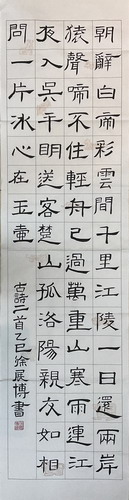 朝辭白帝彩雲間千里江陵一日還兩岸
猿聲啼不住輕舟已過萬重山寒雨連江
夜入吳平明送客楚山孤洛陽親友如相
問一片冰心在玉壺
古詩二首乙巳徐展博書